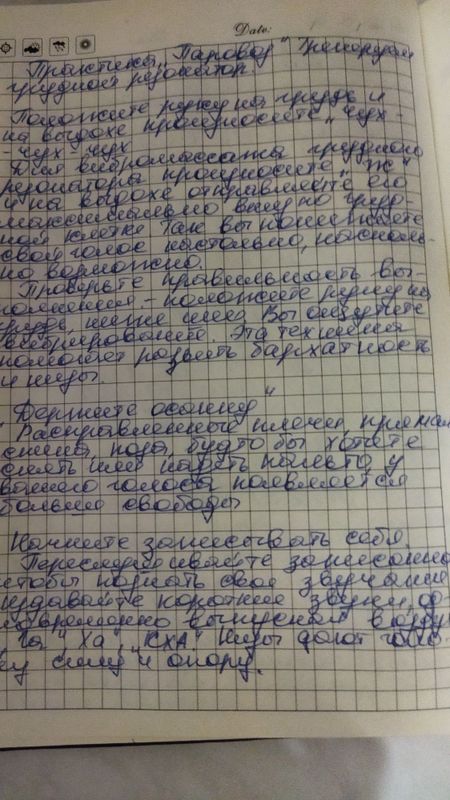 Date:
Практика „Паровоз" Тренируем
грудной резонатор.
Положите руку на грудь и
на выдохе произносите „чух -
- чух - чух
Для вибромассажа грудного
резонатора произносите „Ж"
и на выдохе отправляйте его
максимально вниз по груд-
ной клетке. Так вы понижаете
свой голос настолько, насколь-
ко возможно.
Проверьте правильность вы-
полнения - положите руку на
грудь, ниже шеи Вы ощутите
вибрирование. Эта техника
помогает развить бархатность
и низы.
„Держите осанку"
Расправленного плечи, прямая
спина, поза, будто бы хотите
снять или надеть пальто, у
вашего голоса появляется
больше свободы
Начните записывать себя.
Переслушивайте записанно
чтобы познать свое звучание
издавайте короткие звуки, од-
новременно выпуская воздух
„Га" „Ха", „КХА". Низы дают голо-
су силу и опору.